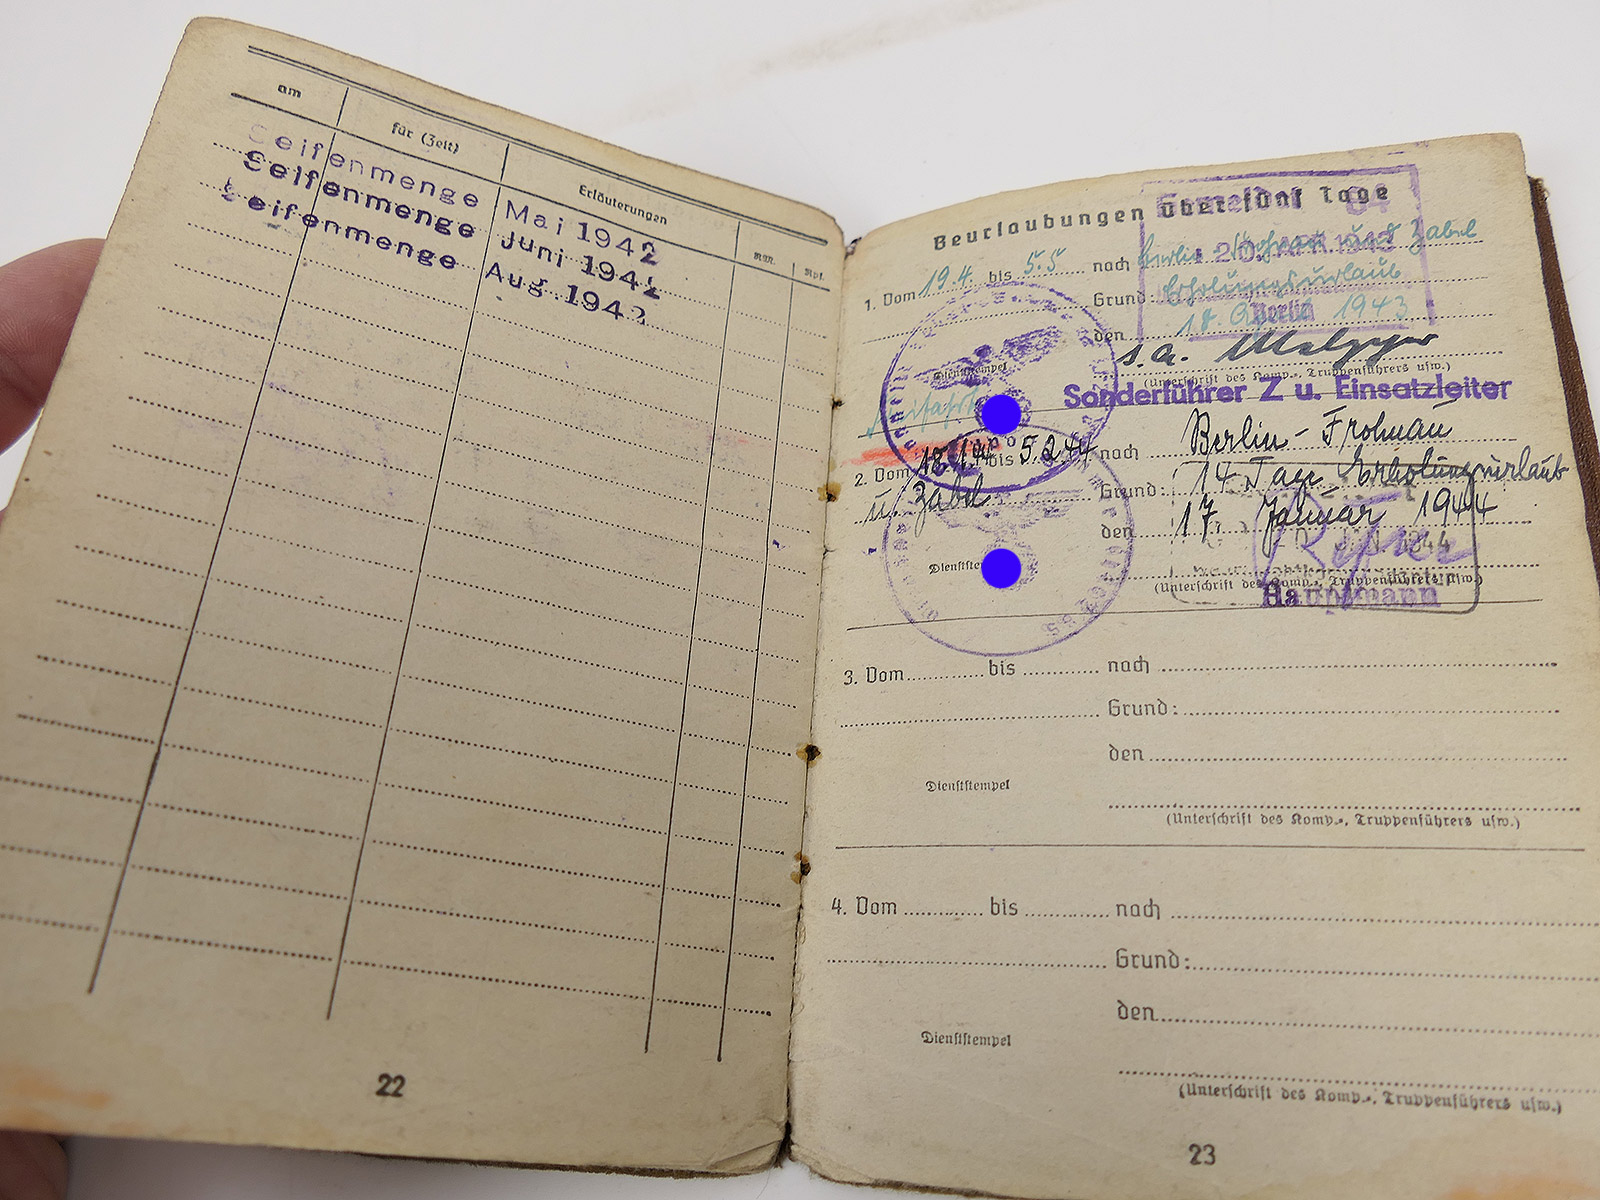 am für (Zeit) Erläuterungen RM. Rpf.
Seifenmenge Mai 1942
Seifenmenge Juni 1942
Seifenmenge Aug. 1942
22
Beurlaubungen über fünf Tage
1. Vom 19.4. bis 5.5 nach Berlin Frohnau und Zabel
Grund: Erholungsurlaub
den 18. April 1943
Dienststempel
(Unterschrift des Komp.-, Truppenführers usw.)
Sonderführer Z u. Einsatzleiter
20. APR. 1943
Berlin
2. Vom 18.1.44 bis 5.2.44 nach Berlin-Frohnau
u. Zabel
Grund: 14 Tage Erholungsurlaub
den 17. Januar 1944
Dienststempel
(Unterschrift des Komp.-, Truppenführers usw.)
Hauptmann
3. Vom bis nach
Grund:
den
Dienststempel
(Unterschrift des Komp.-, Truppenführers usw.)
4. Vom bis nach
Grund:
den
Dienststempel
(Unterschrift des Komp.-, Truppenführers usw.)
23